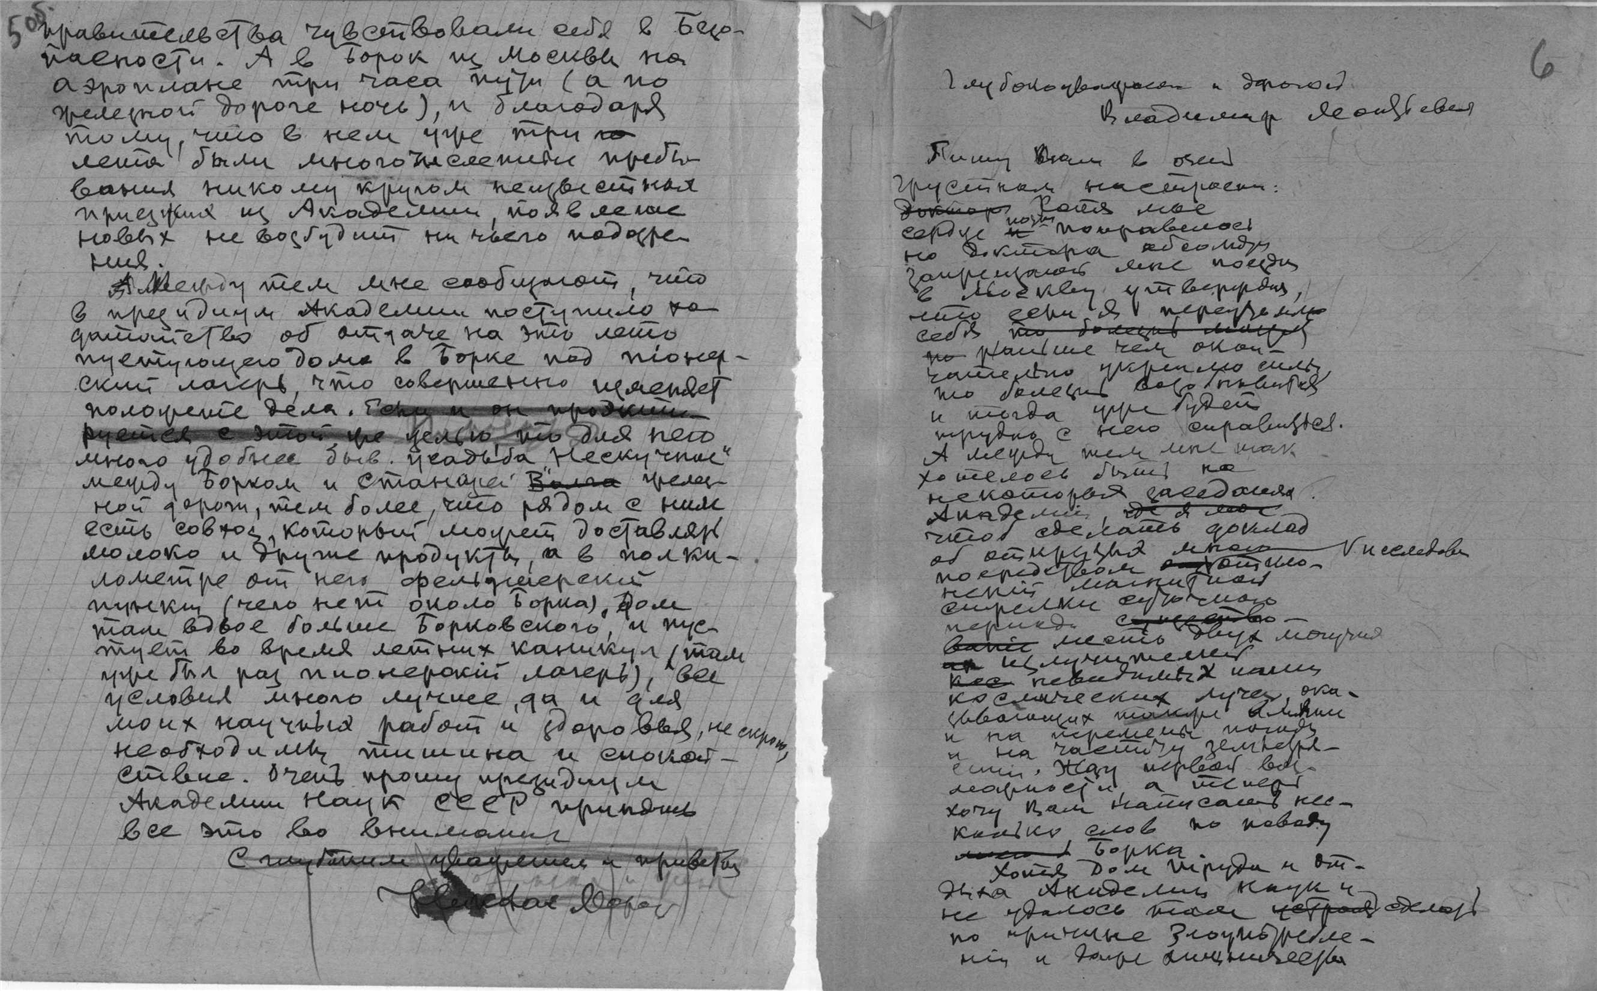 5 об.
правительства чувствовали себя в Безо-
пасности. А в Борок из Москвы на
аэроплане три часа пути (а по
железной дороге ночь), и благодаря
тому, что в нем уже три
лета были многочисленные пребы-
вания никому кругом неизвестных
приезжих из Академии, появление
новых не возбудит ни чьего подозре-
ния.
А Между тем мне сообщают, что
в президиум Академии поступило хо-
датайство об отдаче на это лето
пустующего дома в Борке под піонер-
ский лагерь, что совершенно изменяет
положение дела. Если и он проэкти-
руется с этой же целью, то для него
много удобнее быв. усадьба "Нескучное"
между Борком и станцией Волга желез-
ной дороги, тем более, что рядом с ним
есть совхоз, который может доставлять
молоко и другие продукты, а в полки-
лометре от него фельдшерский
пункт (чего нет около Борка). Дом
там вдвое больше Борковского, и пус-
тует во время летних каникул (там
уже был раз пионерскій лагерь), все
условия много лучше, да и для
моих научных работ и здоровья, не скрою,
необходимы тишина и спокой-
ствие. Очень прошу президиум
Академии Наук СССР принять
все это во внимание
С глубоким уважением и приветом
Николай Мороз
6
Глубокоуважаемый и дорогой
Владимир Леонтьевич
Пишу Вам в очень
грустном настроении:
Доктор Хотя мое
сердце и почти поправилось
но доктора абсолютно
запрещают мне поездку
в Москву утверждая,
что если я переутомлю
себя то болезнь может
по раньше чем окон-
чательно укреплю силы,
то болезнь возобновится
и тогда уже будет
трудно с нею справиться.
А между тем мне так
хотелось быть на
некоторых заседаниях
Академии, где я мог
чтоб сделать доклад
об открытых мною V исследован
посредством отклоне-
ний магнитной
стрелки суточного
периода существо-
вание шести двух могучих
излучителей
кос невидимых нами
космических лучей, ока-
зывающих также влияние
и на перемены погоды
и на частоту землетря-
сений. Жду первой воз-
можности, а теперь
хочу Вам написать не-
сколько слов по поводу
Борка
Хотя Дом труда и от-
дыха Академии наук и
не удалось там устроить сделать
по причине злоупотребле-
ний и даже хищничества